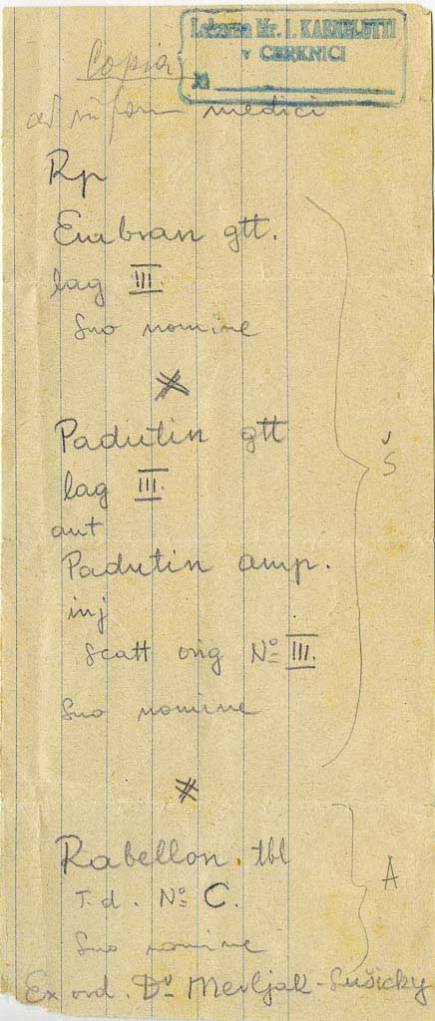 Lekarna Mr. I. KABELOTTI
v CERKNICI
Copia
medici
Rp
Embran gtt.
lag III.
Suo nomine
Padutin gtt
lag III.
aut
Padutin amp.
inj
scatt orig Nº III.
Suo nomine
Š
Rabellon. tbl
T. d. Nº C.
Suo nomine
A
Ex ord. Dr Merljak-Sušicky